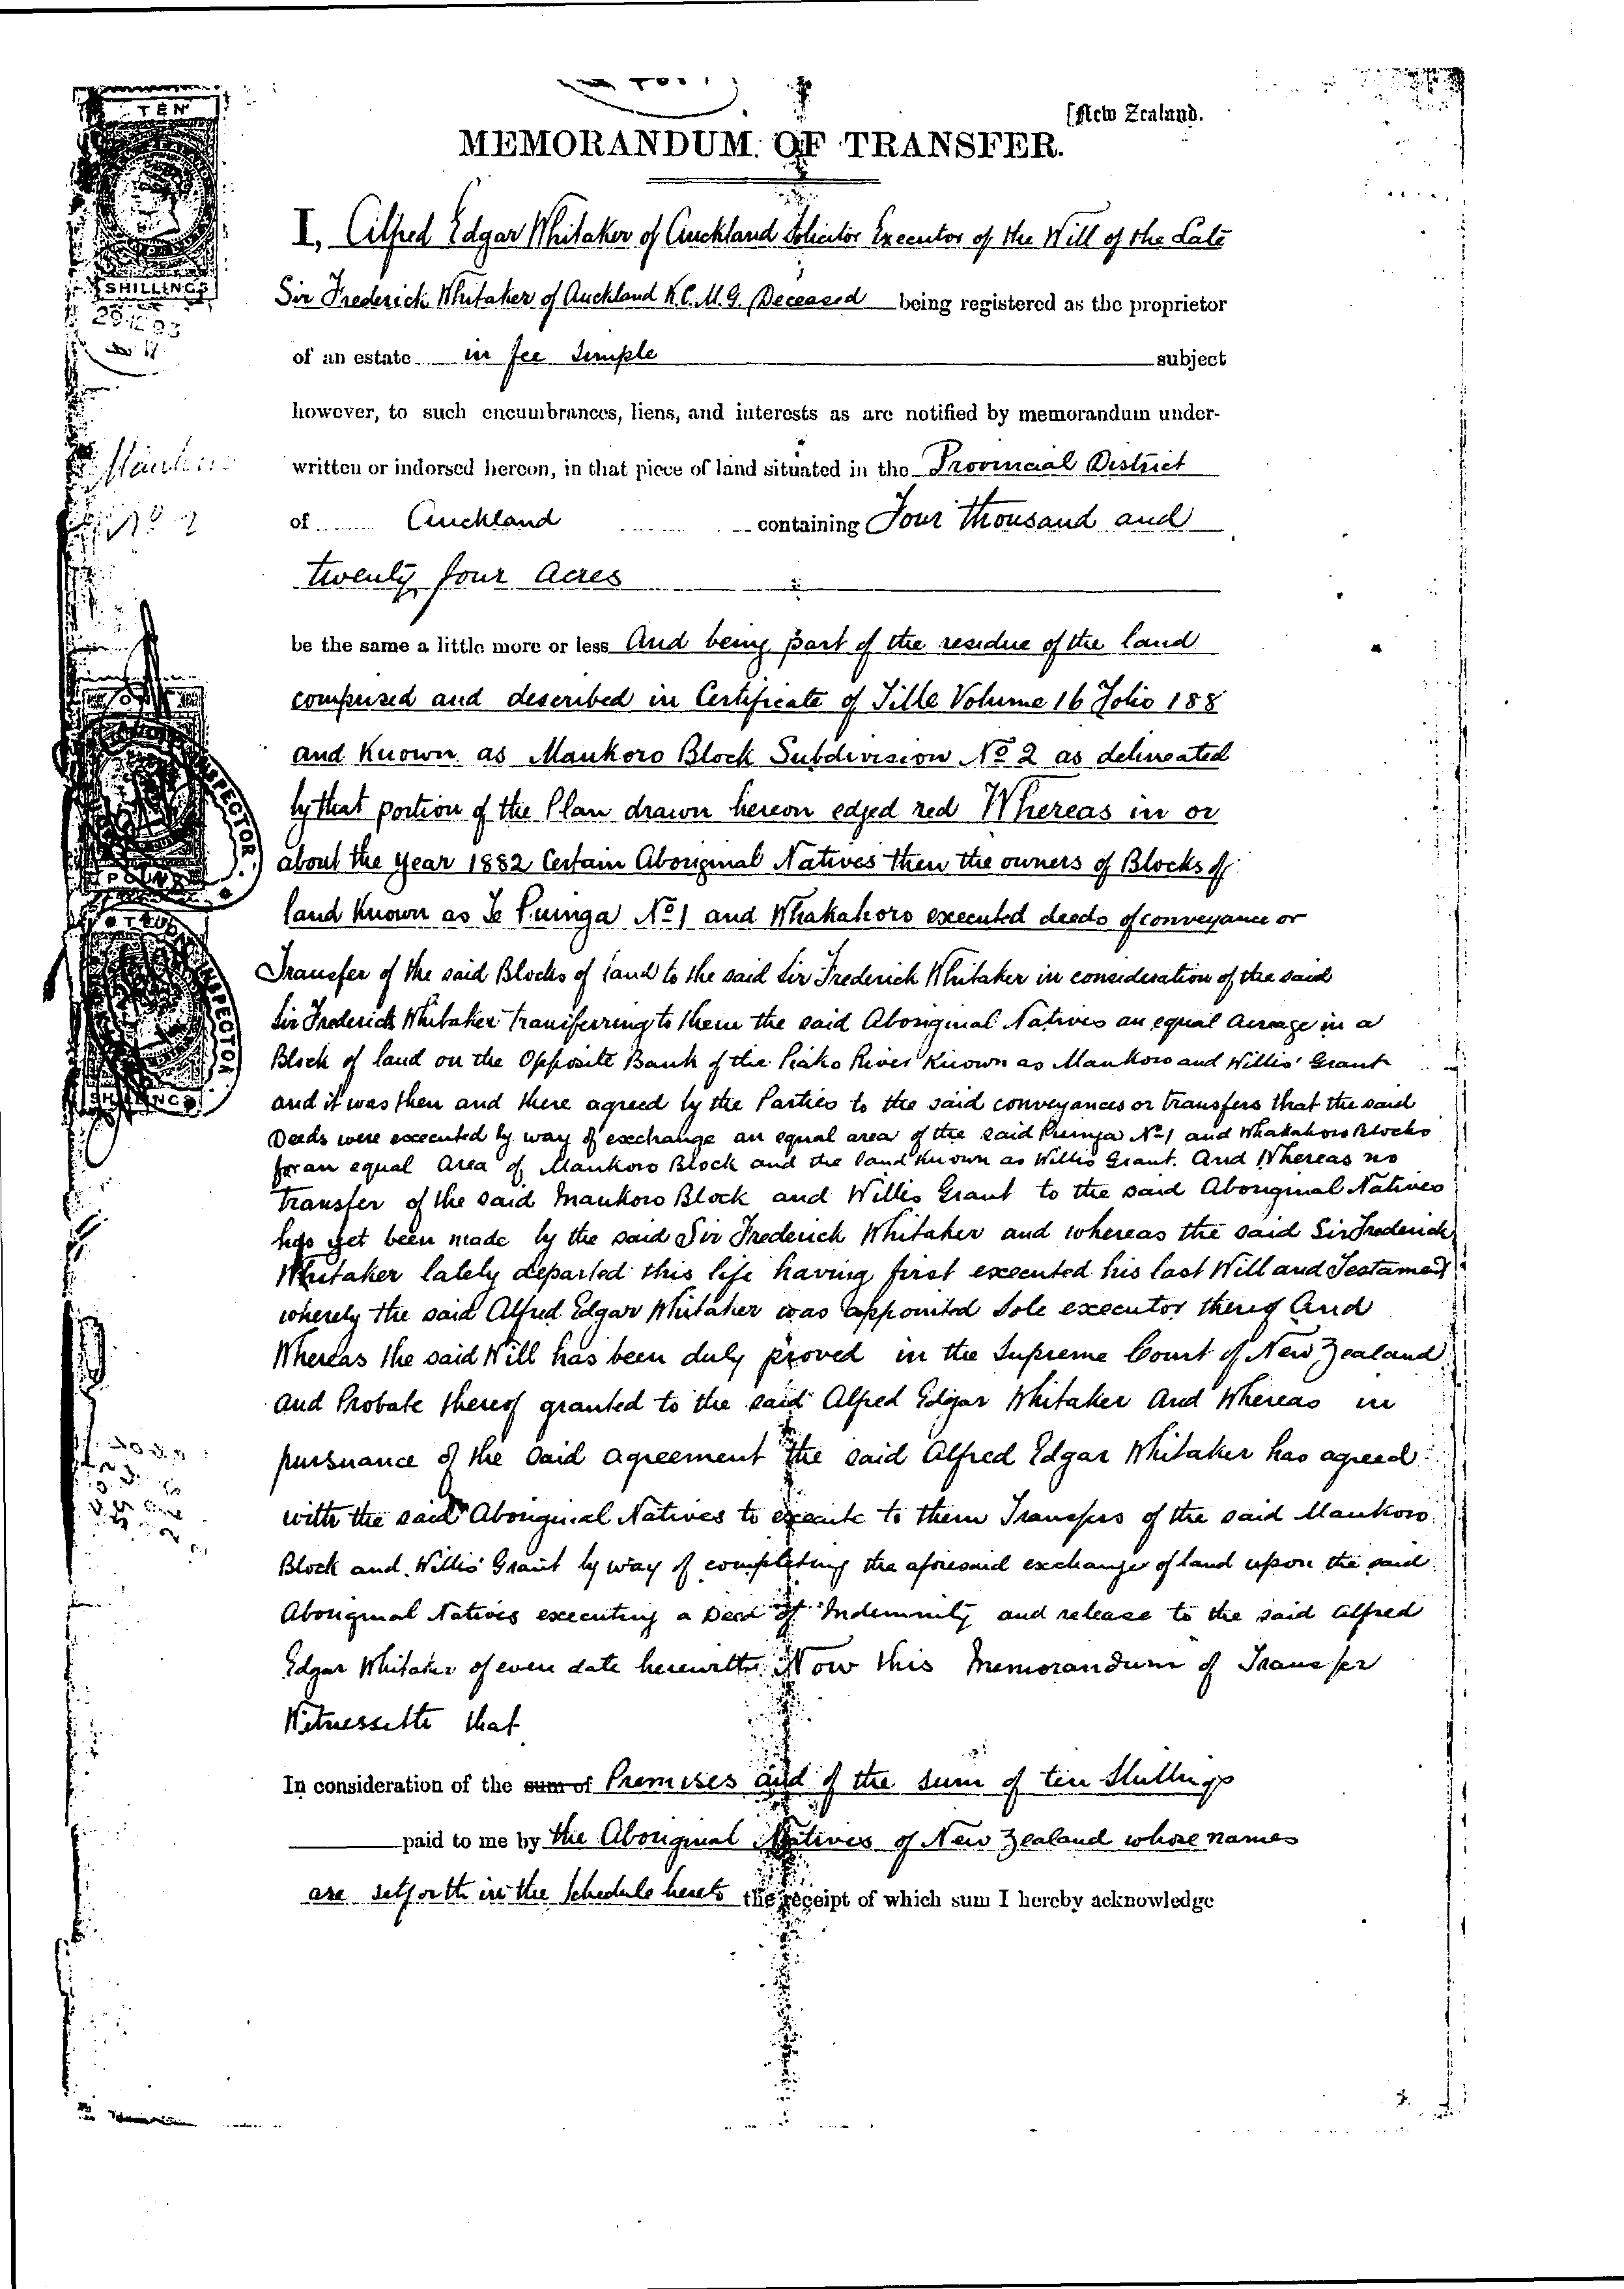 [New Zealand.
MEMORANDUM OF TRANSFER.
TEN
SHILLINGS
I, Alfred Edgar Whitaker of Auckland Solicitor Executor of the Will of the Late
Sir Frederick Whitaker of Auckland K.C.M.G. Deceased being registered as the proprietor
of an estate in fee simple subject
however, to such encumbrances, liens, and interests as are notified by memorandum under-
written or indorsed hereon, in that piece of land situated in the Provincial District
of Auckland containing Four thousand and
twenty four acres
be the same a little more or less And being part of the residue of the land
comprised and described in Certificate of Title Volume 16 Folio 188
and known as Maukoro Block Subdivision No 2 as delineated
by that portion of the Plan drawn hereon edged red Whereas in or
about the year 1882 Certain Aboriginal Natives then the owners of Blocks of
land known as Te Puinga No 1 and Whakahoro executed deeds of conveyance or
Transfer of the said Blocks of land to the said Sir Frederick Whitaker in consideration of the said
Sir Frederick Whitaker transferring to them the said Aboriginal Natives an equal acreage in a
Block of land on the Opposite Bank of the Piako River Known as Maukoro and Willis' Grant
and it was then and there agreed by the Parties to the said conveyances or transfers that the said
Deeds were executed by way of exchange an equal area of the said Puinga No 1 and Whakahoro Blocks
for an equal Area of Maukoro Block and the land known as Willis Grant. And Whereas no
transfer of the said Maukoro Block and Willis Grant to the said Aboriginal Natives
has yet been made by the said Sir Frederick Whitaker and whereas the said Sir Frederick
Whitaker lately departed this life having first executed his last Will and Testament
whereby the said Alfred Edgar Whitaker was appointed Sole executor thereof And
Whereas the said Will has been duly proved in the Supreme Court of New Zealand
and Probate thereof granted to the said Alfred Edgar Whitaker And Whereas in
pursuance of the said agreement the said Alfred Edgar Whitaker has agreed
with the said Aboriginal Natives to execute to them Transfers of the said Maukoro
Block and Willis' Grant by way of completing the aforesaid exchange of land upon the said
Aboriginal Natives executing a Deed of Indemnity and release to the said Alfred
Edgar Whitaker of even date herewith Now this Memorandum of Transfer
Witnesseth that
In consideration of the sum of Premises and of the sum of ten Shillings
paid to me by the Aboriginal Natives of New Zealand whose names
are setforth in the Schedule hereto the receipt of which sum I hereby acknowledge